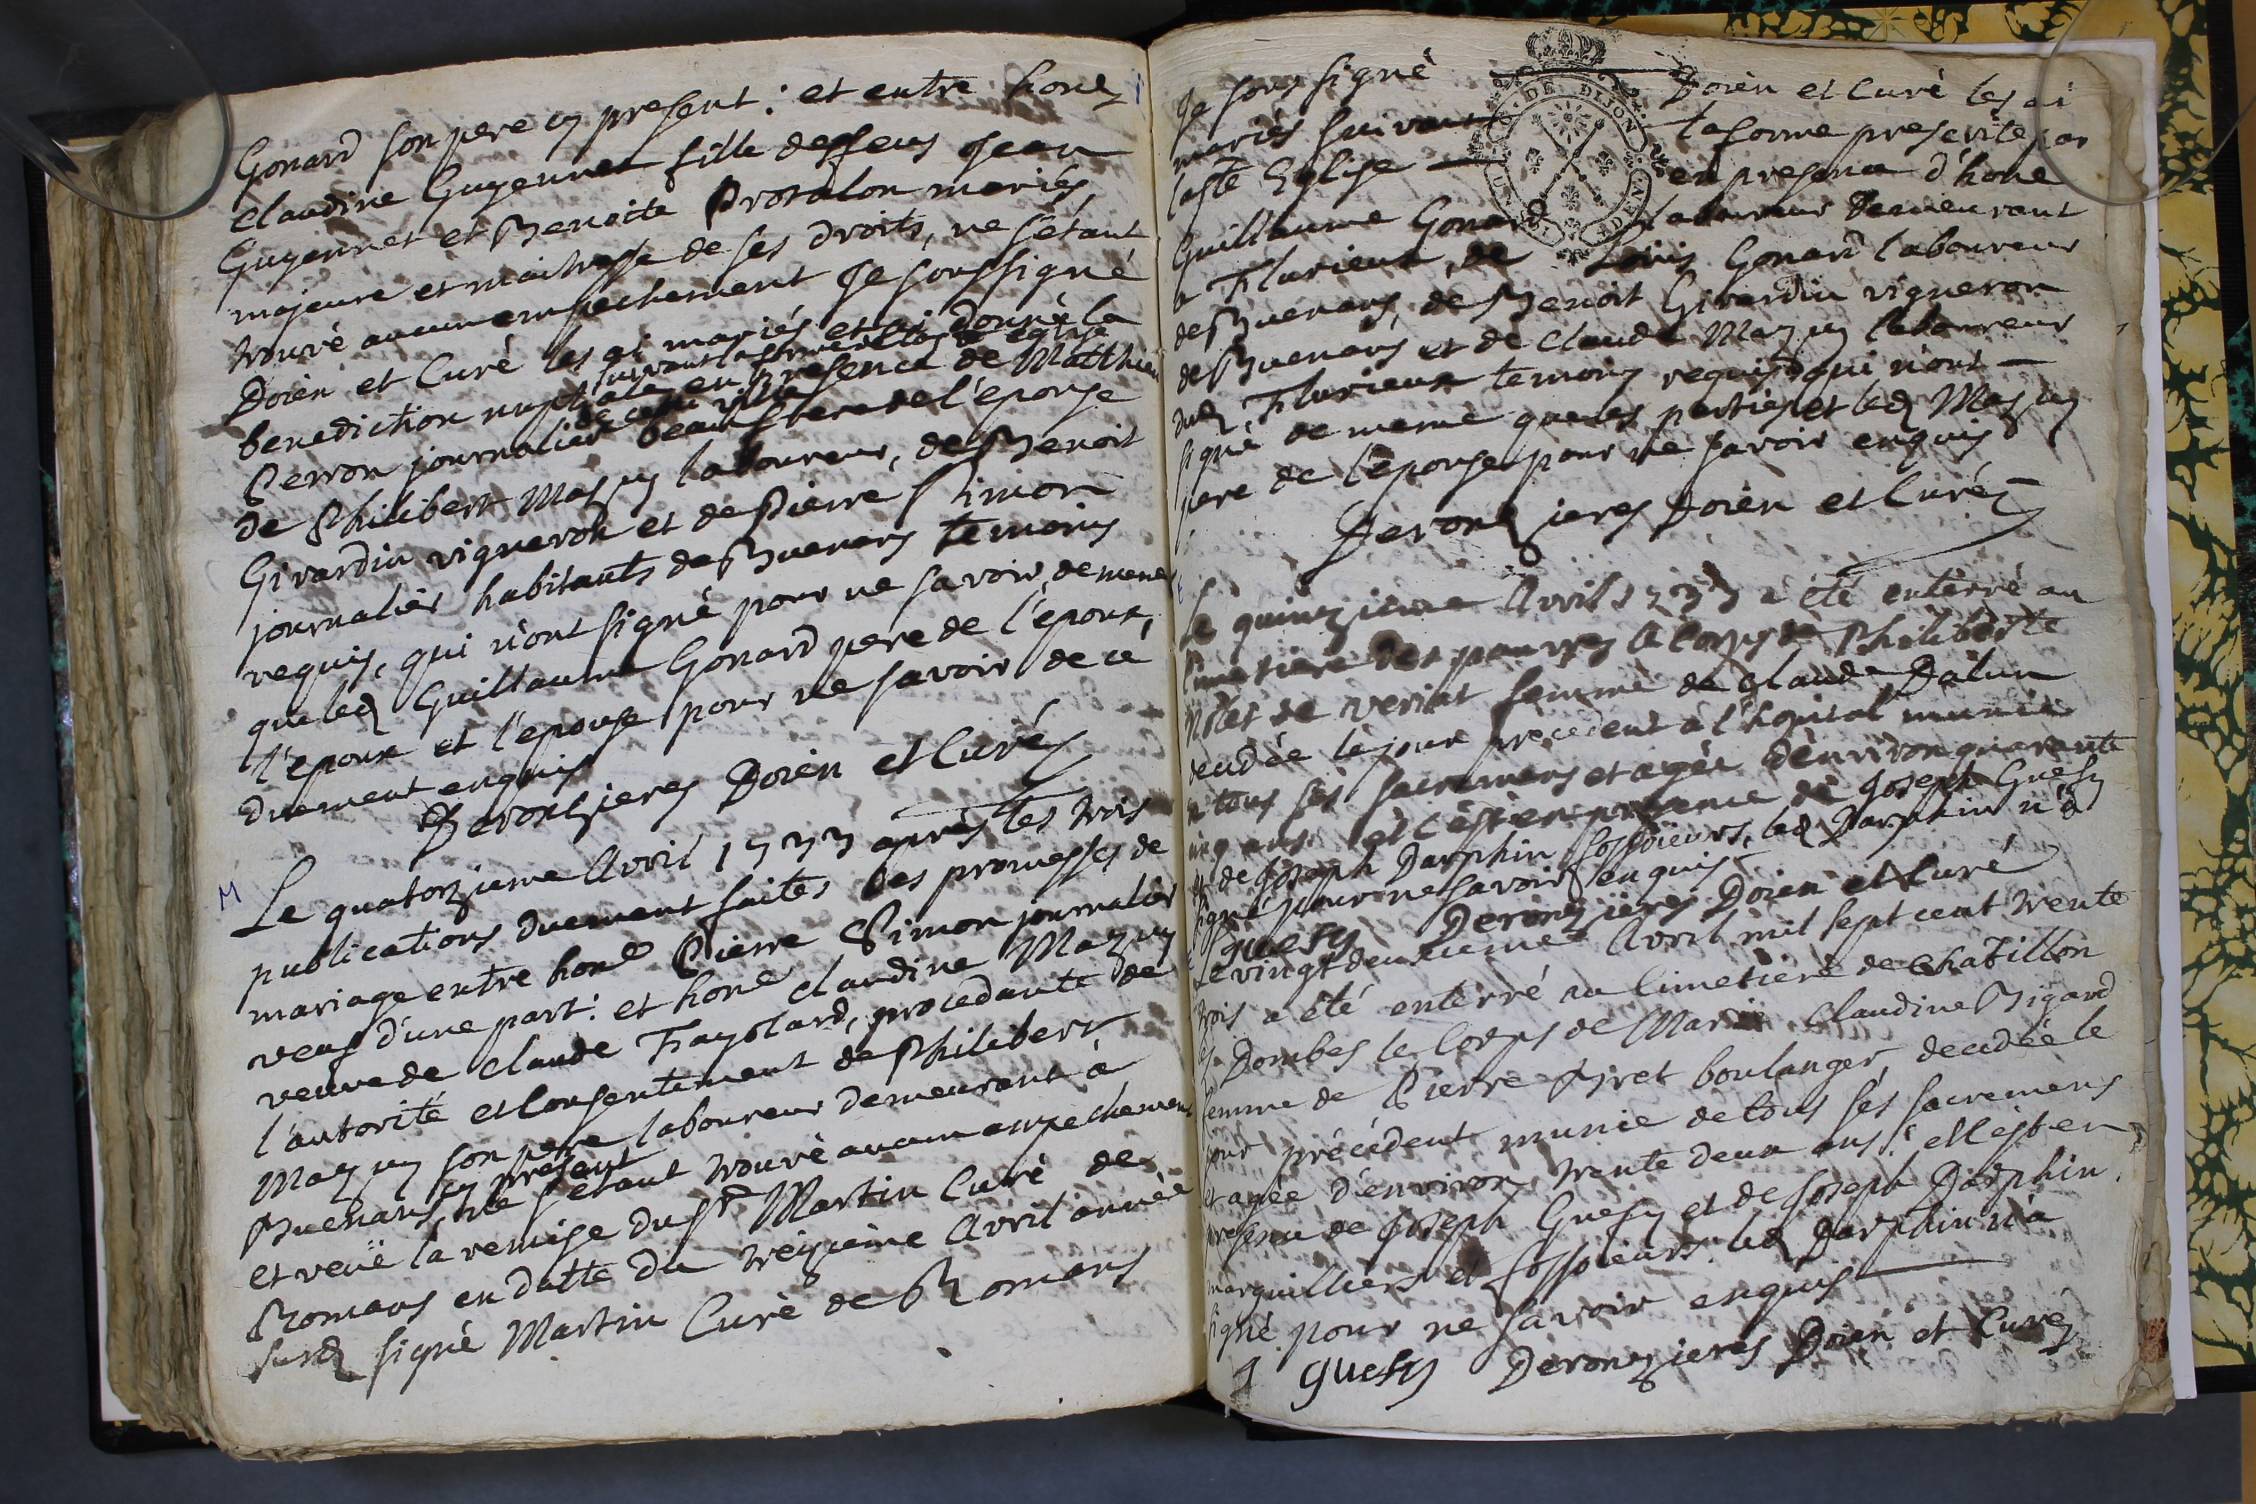 Gonard son pere cy present : et entre honê
claudine Guyennet fille deffeus Jean
Guyennet et Benoitte Prost mariés,
majeure et maitresse de ses droits, ne s'étant
trouvé aucun empechement Je soussigné
Doien et Curé les ai mariés et ai donné la
suivant la forme de l'église
benediction nuptiale en presence de Matthieu
de cette ville
Perron journalier beaufrere de l'epouse
de Philibert Mazuy laboureur, de Benoit
Girardin vigneron et de Pierre Simon
journalier habitants de Buenans temoins
requis, qui n'ont signé pour ne savoir, de meme
que led Guillaume Gonard pere de l'epoux,
l'epoux et l'epouse pour ne savoir de ce
duement enquis
Deronzieres Doien et Curé
M
Le quatorzieme Avril 1733 après les trois
publications duement faites des promesses de
mariage entre hone Pierre Simon journalier
veuf d'une part : et hone claudine Mazuy
veuve de claude Fayolard, procedante de
l'autorité et consentement de Philibert
Mazuy son pere laboureur demeurant à
cy present
Buenans, ne s'étant trouvé aucun empechement
et veuë la remise du Sr Martin Curé de
Romans en datte du treizieme Avril année
susd signé Martin Curé de Romans
Je sous signé Doien et Curé les ai
mariés suivant la forme prescrite par
laste Eglise en presence d'hone
Guillaume Gonard laboureur demeurant
a Flurieux, de Louis Gonard laboureur
de Buenans, de Benoit Girardin vigneron
de Buenans et de claude Mazuy laboureur
dud Flurieux temoins requis qui n'ont
signé de meme que les parties et led Mazuy
pere de l'epouse pour ne savoir enquis
Deronzieres Doien et Curé
GEN. DE DIJON
Le quinzieme Avril 1733 a été enterré au
Cimetiere des pauvres le corps de Philiberte
de veriat femme de claude Dalun
decedée le jour précedent à l'hopital munie
de tous ses sacremens et agée d'environ quarante
cinq ans et c'est en presence de Joseph Guesy
et de Joseph Darphin fossoieurs, led Darphin n'a
signé pour ne savoir enquis
Guesy Deronzieres Doien et Curé
Le vingt deuxieme Avril mil sept cent trente
trois a été enterré au Cimetiere de Chatillon
les Dombes le Corps de Marie claudine Bigard
femme de Pierre boulanger, decedée le
jour précédent munie de tous ses sacremens
et agée d'environ trente deux ans : et c'est en
presence de Joseph Guesy et de Joseph Darphin
marguilliers et fossoieurs led Darphin n'a
signé pour ne savoir enquis
J Guesy Deronzieres Doien et Curé